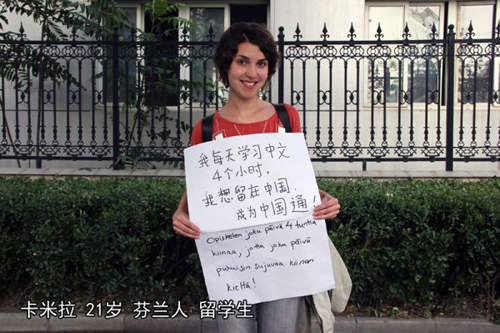 我每天学习中文
4个小时.
我想留在中国,
成为中国通!
Opiskelen joka päivä 4 tuntia
kiinaa, jotta joku päivä
puhuisin sujuvaa kiinan
kieltä!
卡米拉 21岁 芬兰人 留学生